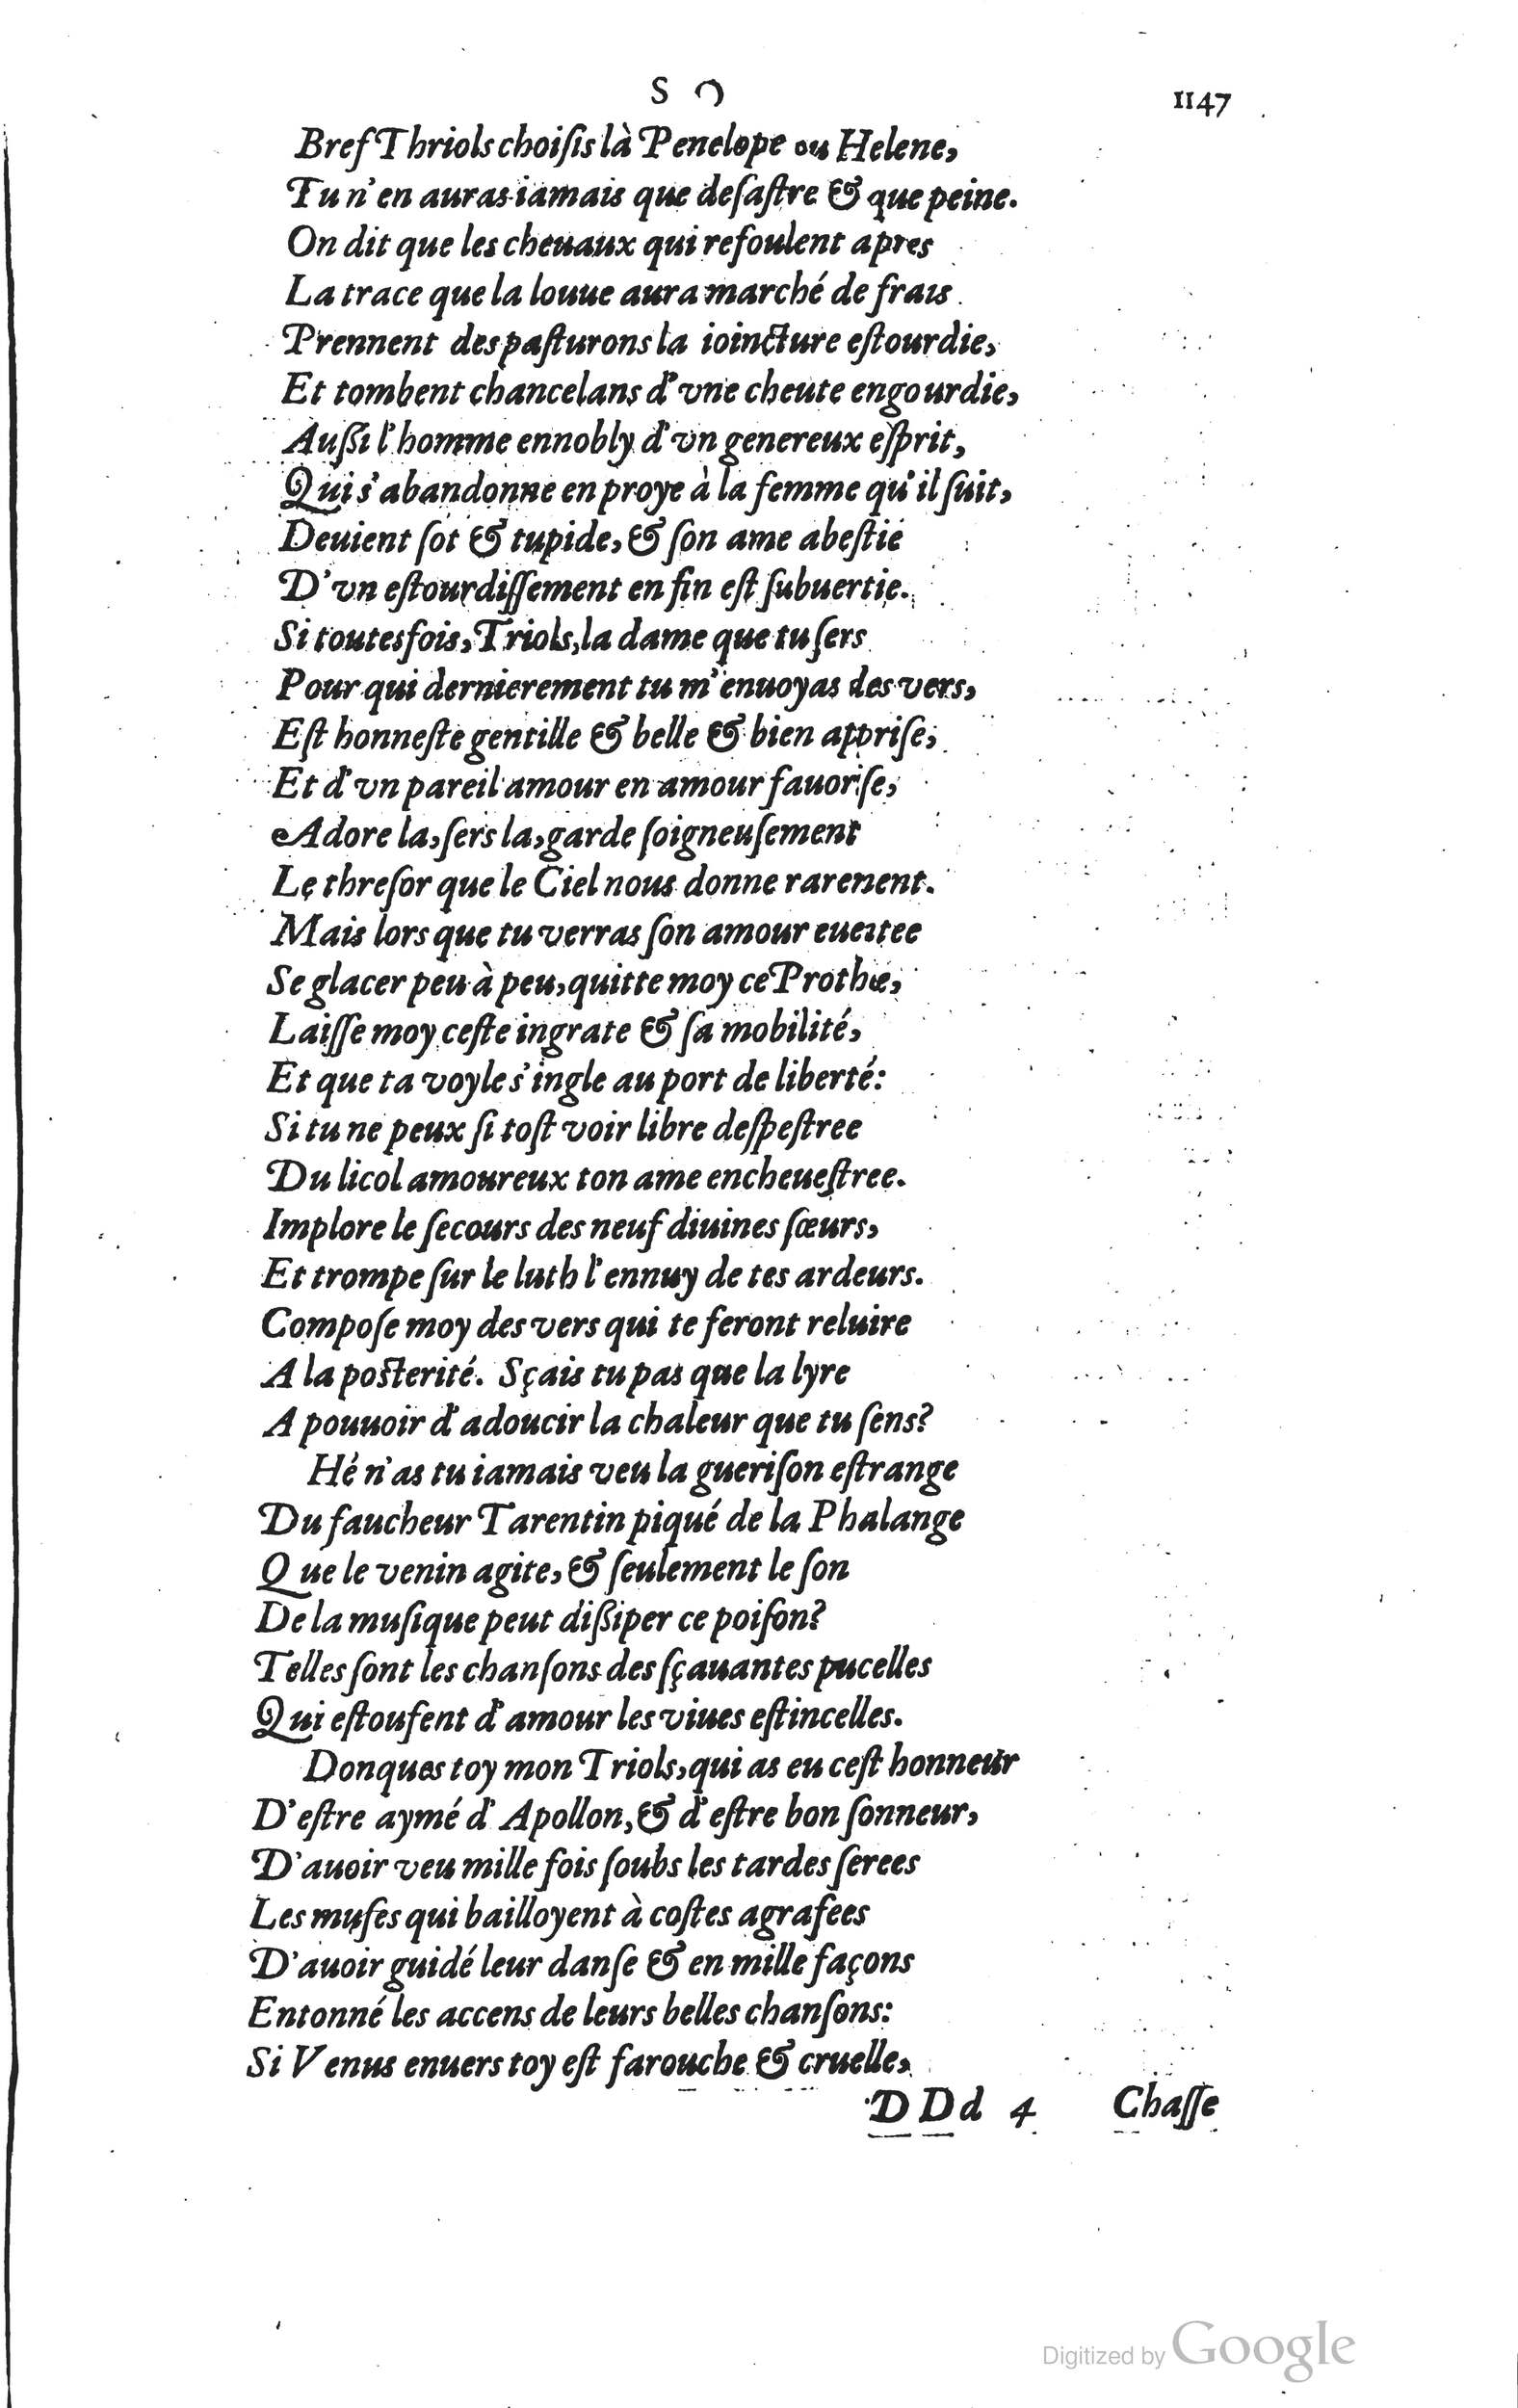 S O 1147
Bref Thriols choiſis là Penelope ou Helene,
Tu n'en auras iamais que deſaſtre & que peine.
On dit que les cheuaux qui refoulent apres
La trace que la louue aura marché de frais
Prennent des paſturons la ioincture eſtourdie,
Et tombent chancelans d'vne cheute engourdie,
Auſſi l'homme ennobly d'vn genereux eſprit,
Qui s'abandonne en proye à la femme qu'il ſuit,
Deuient ſot & tupide, & ſon ame abeſtie
D'vn eſtourdiſſement en fin eſt ſubuertie.
Si toutesfois, Triols, la dame que tu ſers
Pour qui dernierement tu m'enuoyas des vers,
Eſt honneſte gentille & belle & bien appriſe,
Et d'vn pareil amour en amour fauoriſe,
Adore la, ſers la, garde ſoigneuſement
Le threſor que le Ciel nous donne rarement.
Mais lors que tu verras ſon amour euentee
Se glacer peu à peu, quitte moy ce Prothee,
Laiſſe moy ceſte ingrate & ſa mobilité,
Et que ta voyle s'ingle au port de liberté:
Si tu ne peux ſi toſt voir libre deſpeſtree
Du licol amoureux ton ame encheueſtree.
Implore le ſecours des neuf diuines ſœurs,
Et trompe ſur le luth l'ennuy de tes ardeurs.
Compoſe moy des vers qui te feront reluire
A la poſterité. Sçais tu pas que la lyre
A pouuoir d'adoucir la chaleur que tu ſens?
Hé n'as tu iamais veu la gueriſon eſtrange
Du faucheur Tarentin piqué de la Phalange
Que le venin agite, & ſeulement le ſon
De la muſique peut diſſiper ce poiſon?
Telles ſont les chanſons des ſçauantes pucelles
Qui eſtoufent d'amour les viues eſtincelles.
Donques toy mon Triols, qui as eu ceſt honneur
D'eſtre aymé d'Apollon, & d'eſtre bon ſonneur,
D'auoir veu mille fois ſoubs les tardes ſerees
Les muſes qui bailloyent à coſtes agrafees
D'auoir guidé leur danſe & en mille façons
Entonné les accens de leurs belles chanſons:
Si Venus enuers toy eſt farouche & cruelle,
DDd 4 Chaſſe
Digitized by Google